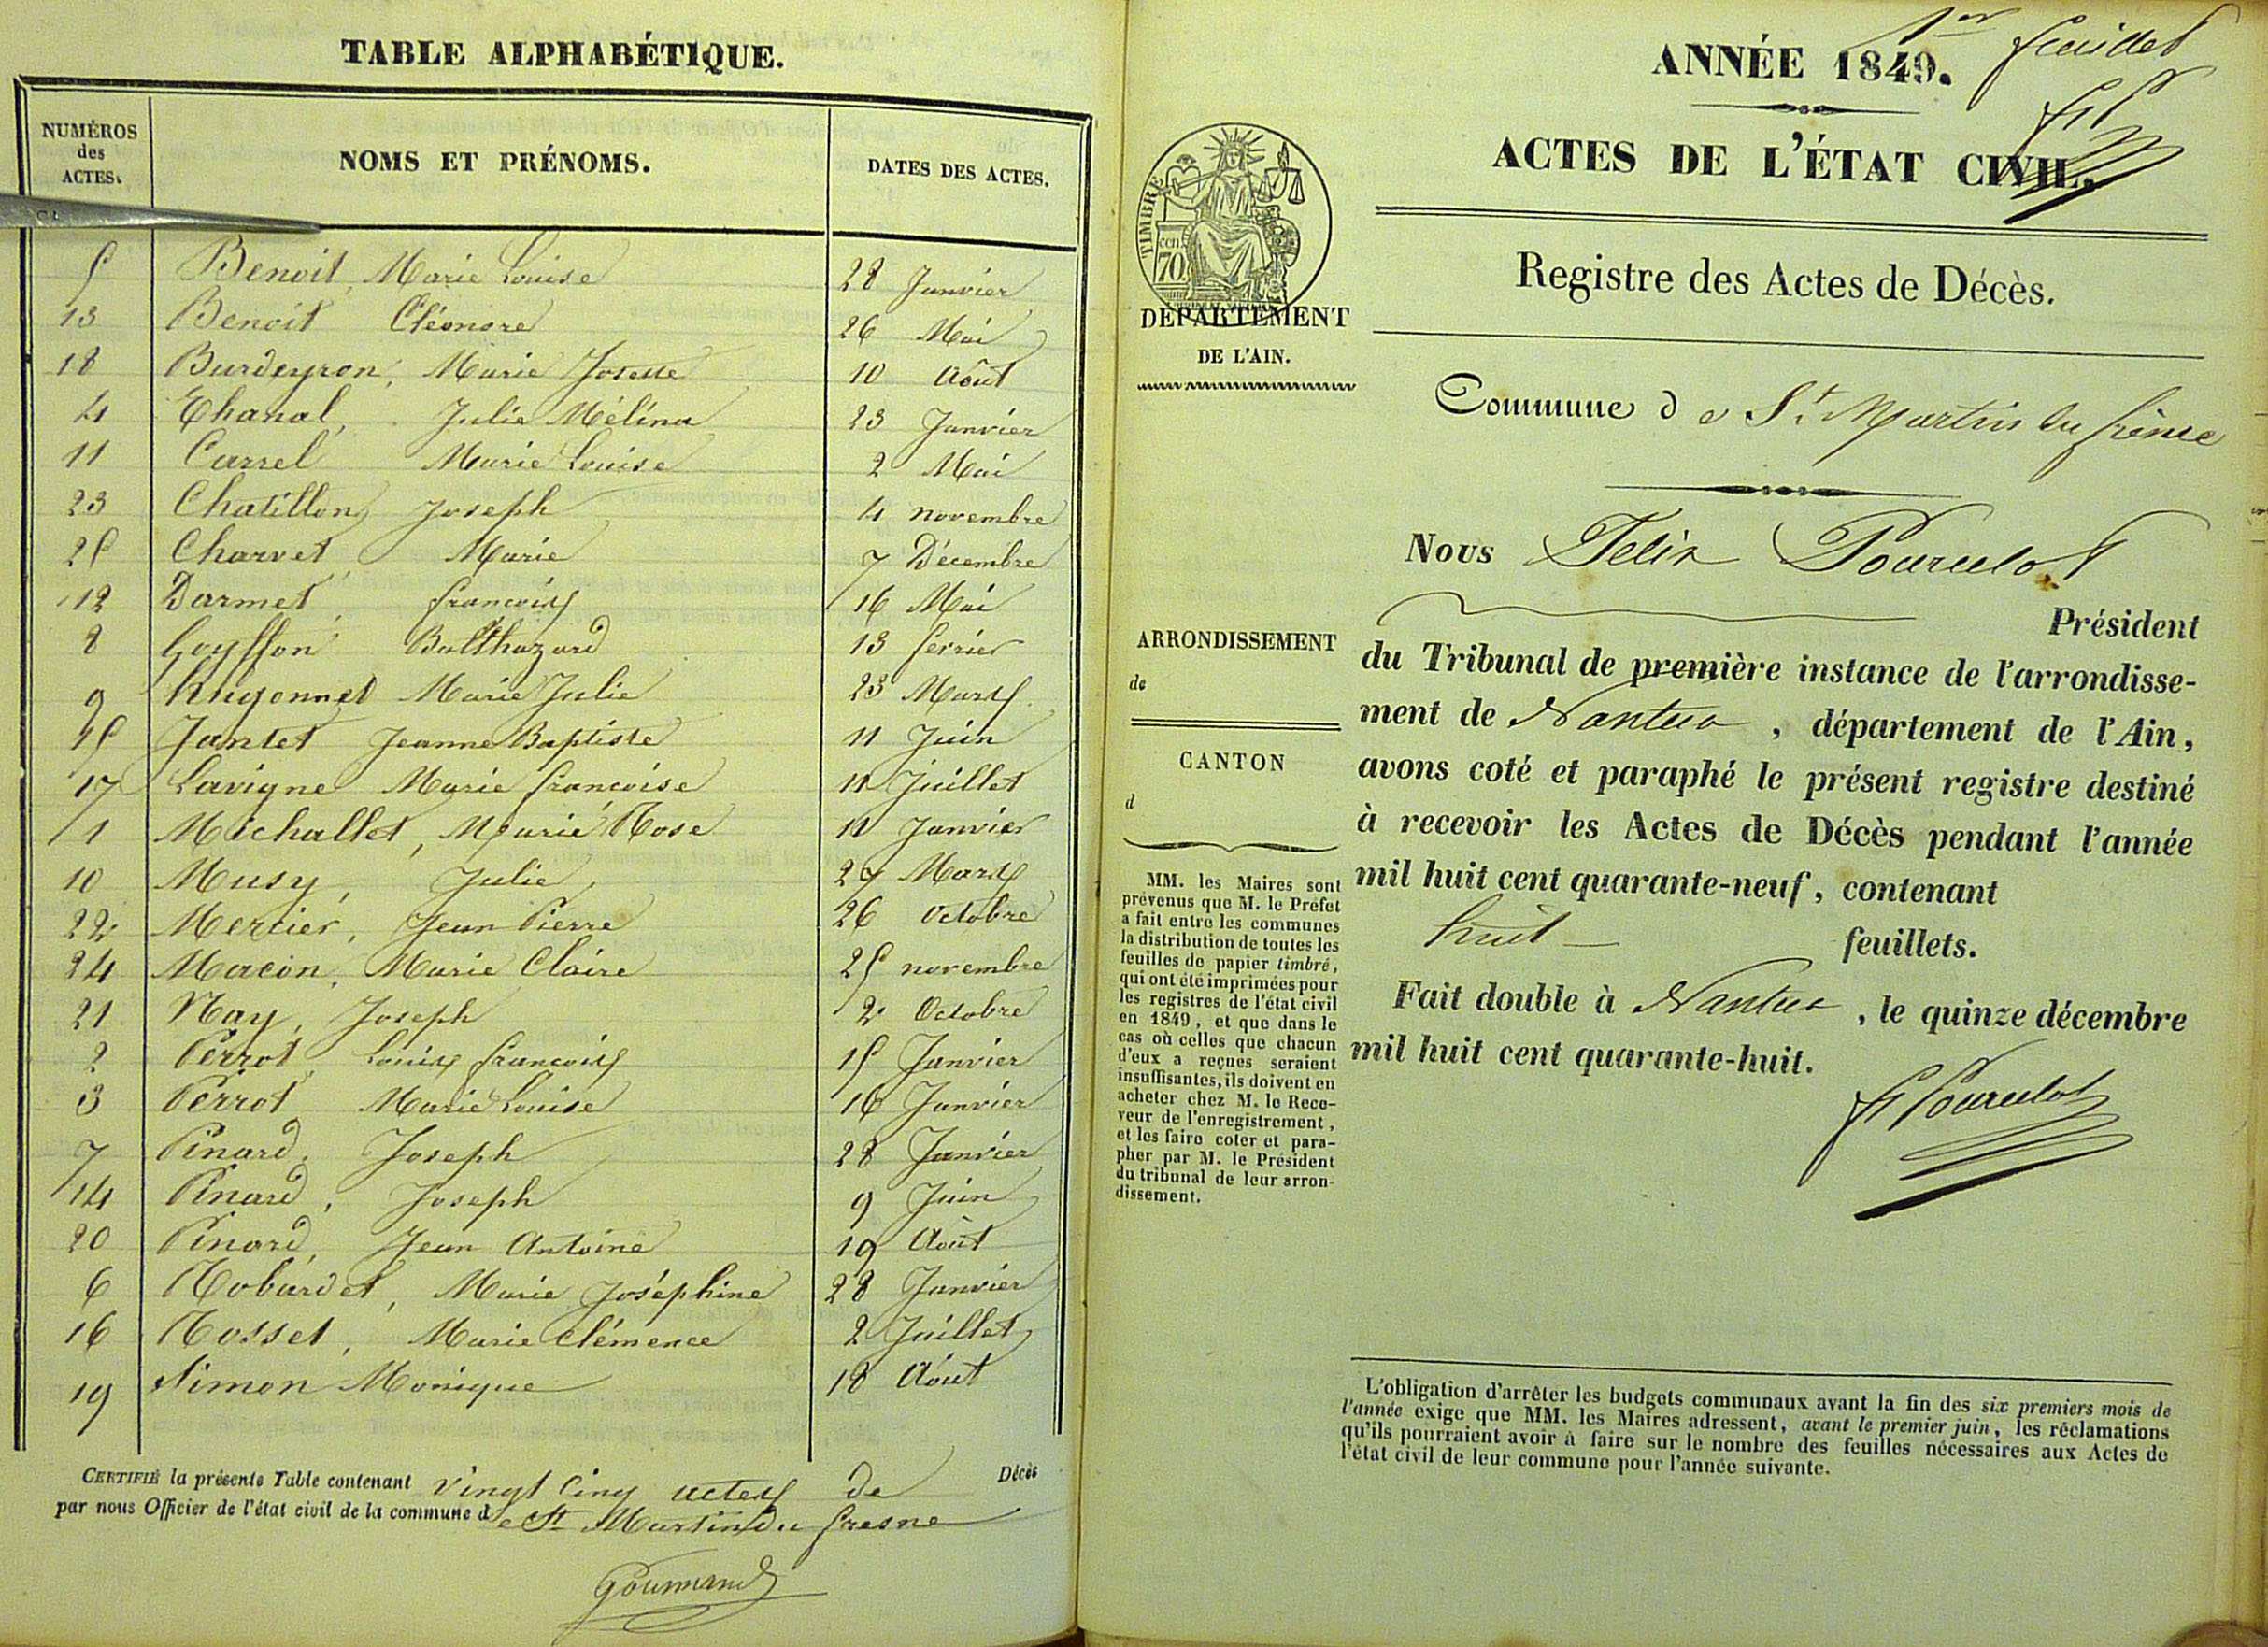 TABLE ALPHABÉTIQUE.
NUMÉROS des ACTES. NOMS ET PRÉNOMS. DATES DES ACTES.
5 Benoit, Marie Louise 28 Janvier
13 Benoit Cléonore 26 Mai
18 Burdeyron, Marie Josette 10 Août
4 Chanal, Julie Mélina 23 Janvier
11 Carrel Marie Louise 2 Mai
23 Chatillon, Joseph 4 novembre
25 Charvet, Marie 7 Décembre
12 Darmet, francois 16 Mai
8 Goyffon Balthazard 13 fevrier
9 Huyonnet Marie Julie 23 Mars
15 Jantet Jeanne Baptiste 11 Juin
17 Lavigne Marie francoise 11 Juillet
1 Michallet, Marie Rose 11 Janvier
10 Musy, Julie 27 Mars
22 Mercier, Jean Pierre 26 Octobre
24 Macon, Marie Claire 25 novembre
21 Nay, Joseph 2 Octobre
2 Perrot, Louis francois 15 Janvier
3 Perrot Marie Louise 16 Janvier
7 Pinard, Joseph 28 Janvier
14 Pinard, Joseph 9 Juin
20 Pinard, Jean Antoine 19 Août
6 Robardet, Marie Joséphine 28 Janvier
16 Rosset, Marie Clémence 2 Juillet
19 Simon Monique 18 Août
CERTIFIÉ la présente Table contenant vingt Cinq actes de Décès
par nous Officier de l'état civil de la commune de St Martin du fresne
Gourmand
1er feuillet
ANNÉE 1849.
ACTES DE L'ÉTAT CIVIL.
TIMBRE
cen. 70
DÉPARTEMENT
DE L'AIN.
Registre des Actes de Décès.
Commune de St Martin du frêne
Nous Felix Pourcelot
Président
du Tribunal de première instance de l'arrondisse-
ment de Nantua, département de l'Ain,
avons coté et paraphé le présent registre destiné
à recevoir les Actes de Décès pendant l'année
mil huit cent quarante-neuf, contenant
huit feuillets.
Fait double à Nantua, le quinze décembre
mil huit cent quarante-huit.
F Pourcelot
ARRONDISSEMENT
de
CANTON
d
MM. les Maires sont
prévenus que M. le Préfet
a fait entre les communes
la distribution de toutes les
feuilles de papier timbré,
qui ont été imprimées pour
les registres de l'état civil
en 1849, et que dans le
cas où celles que chacun
d'eux a reçues seraient
insuffisantes, ils doivent en
acheter chez M. le Rece-
veur de l'enregistrement,
et les faire coter et para-
pher par M. le Président
du tribunal de leur arron-
dissement.
L'obligation d'arrêter les budgets communaux avant la fin des six premiers mois de
l'année exige que MM. les Maires adressent, avant le premier juin, les réclamations
qu'ils pourraient avoir à faire sur le nombre des feuilles nécessaires aux Actes de
l'état civil de leur commune pour l'année suivante.